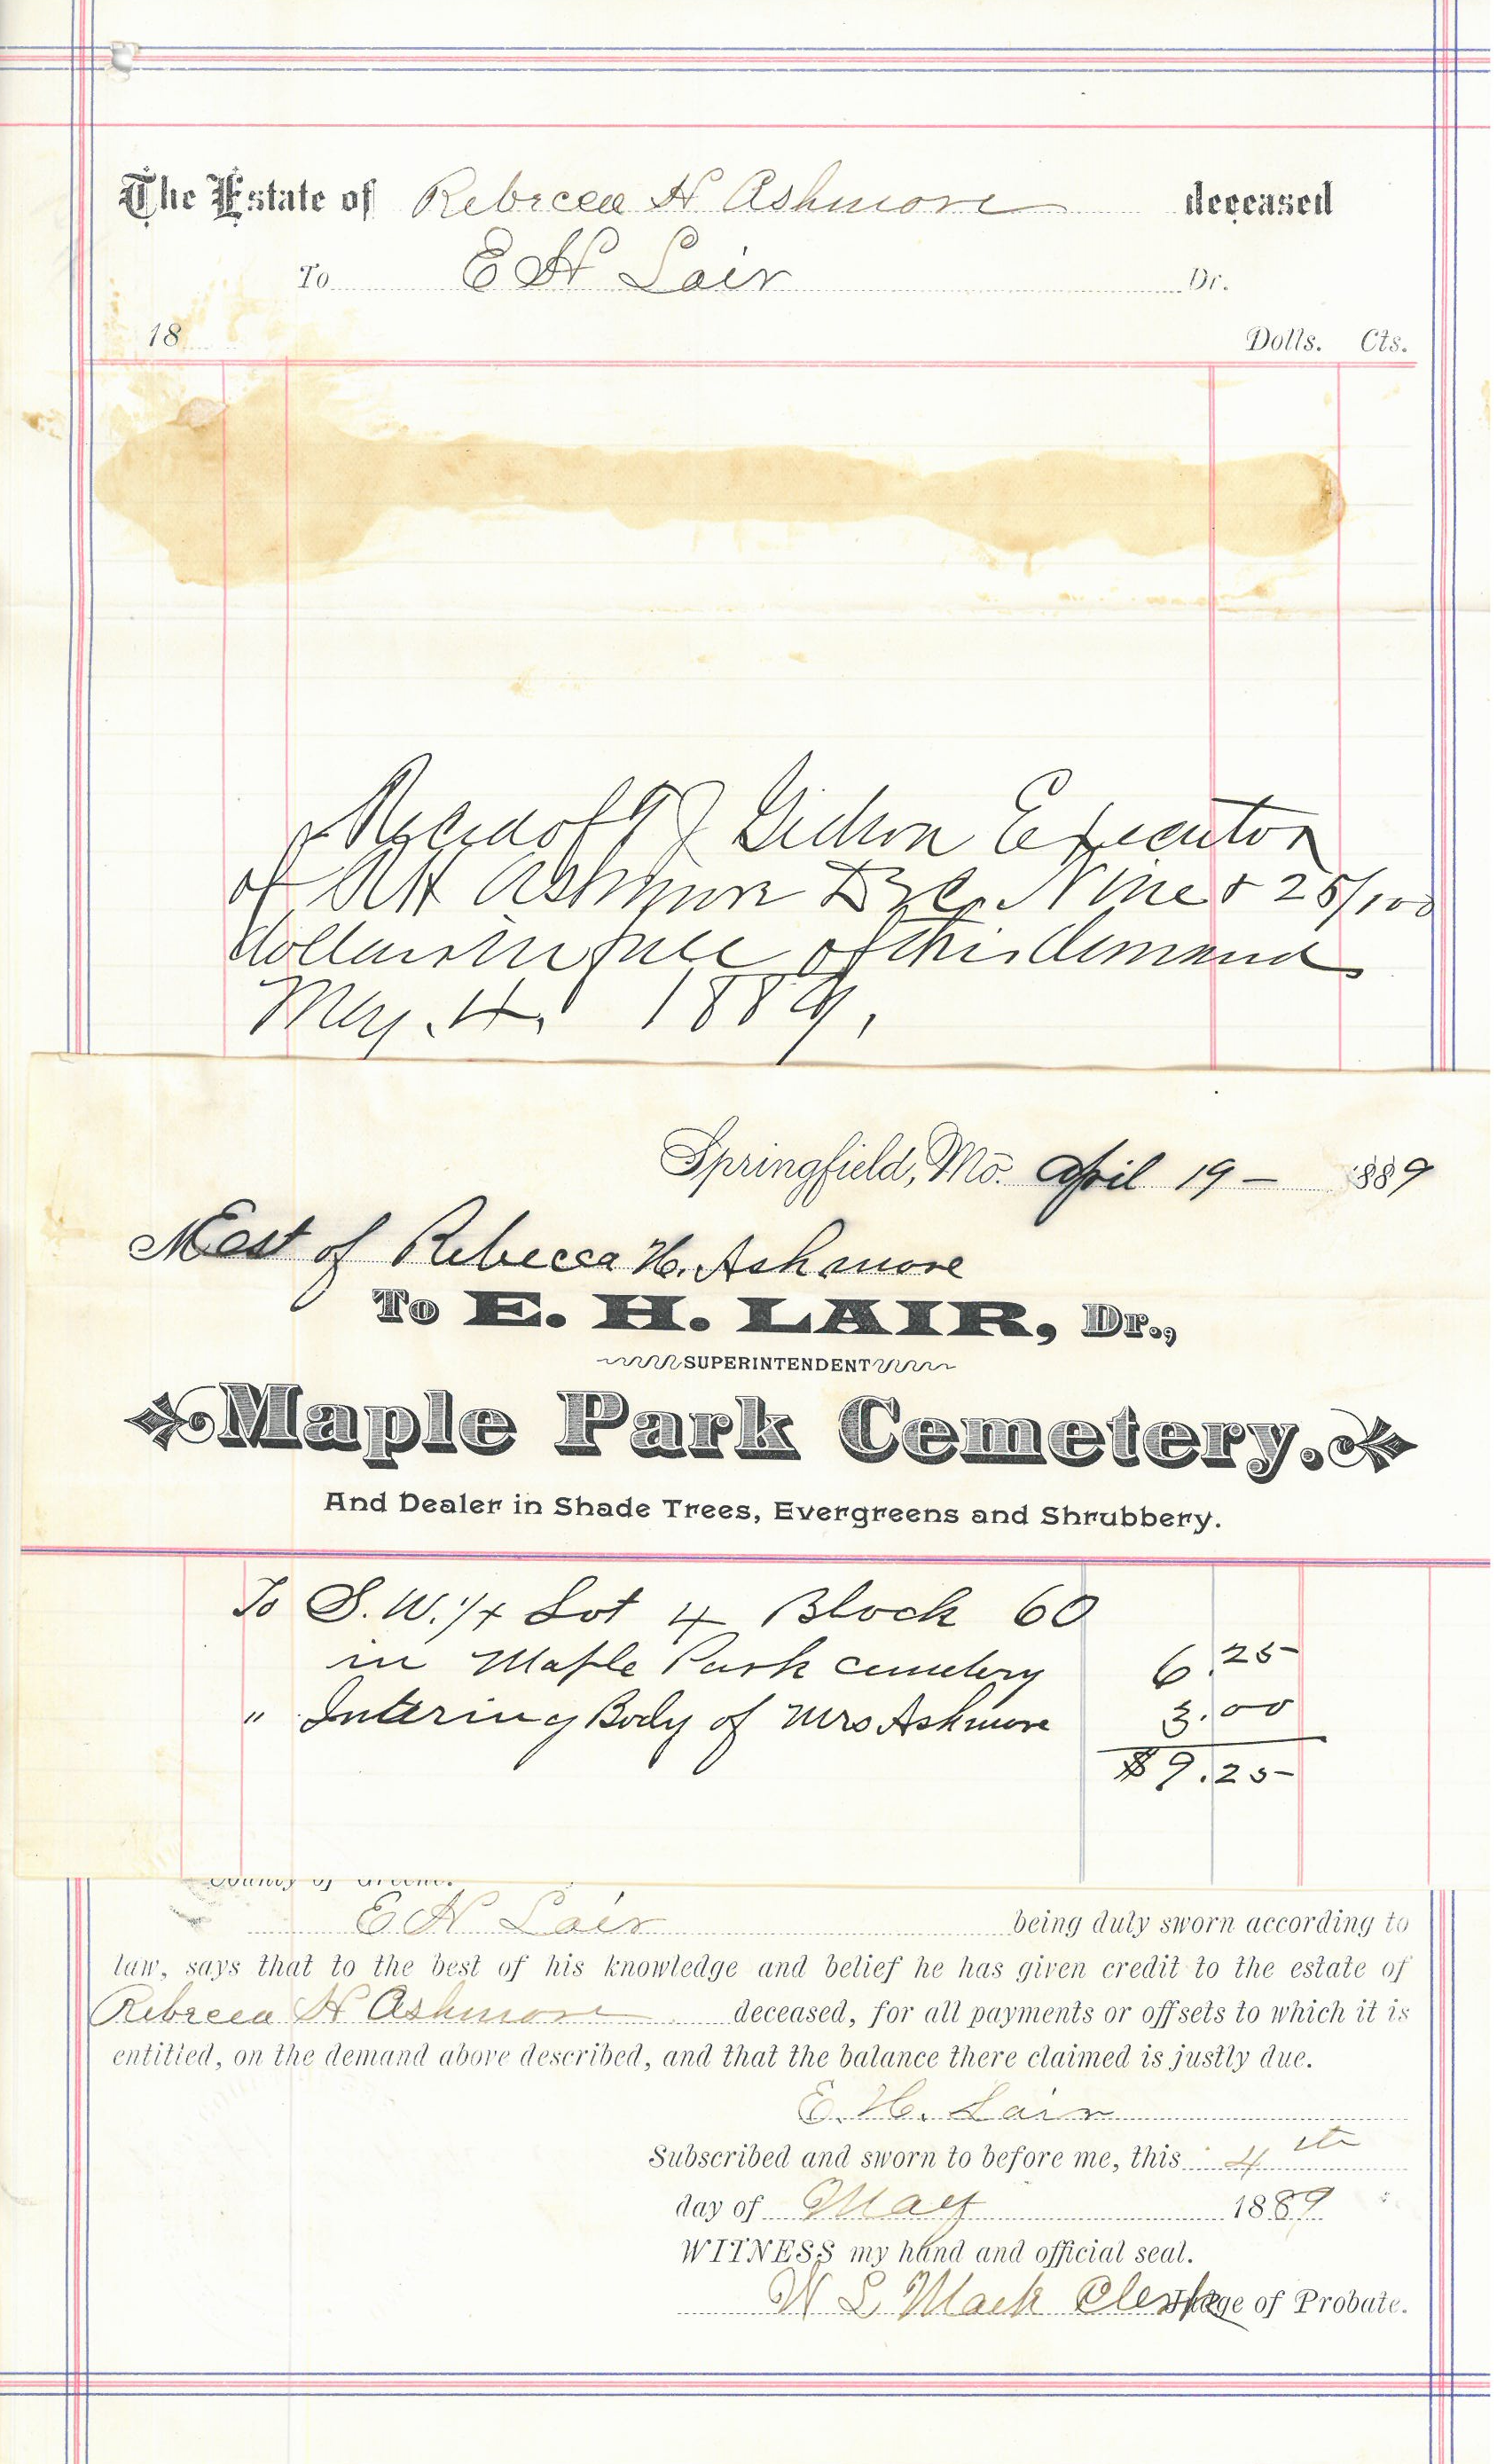 The Estate of Rebecca H Ashmore deceased
To E H Lair Dr.
18
Dolls. Cts.
Recd of T J Gideon Executor
of R H Ashmore Dec. Nine & 25/100
dollars in full of this demand
May. 4. 1889.
Springfield, Mo. April 19 – 1889
M Est of Rebecca H. Ashmore
To E. H. LAIR, Dr.,
SUPERINTENDENT
Maple Park Cemetery.
And Dealer in Shade Trees, Evergreens and Shrubbery.
To S. W. 1/4 Lot 4 Block 60
in Maple Park cemetery 6.25
" Intering Body of Mrs Ashmore 3.00
$9.25
County of Greene.
E H Lair being duly sworn according to
law, says that to the best of his knowledge and belief he has given credit to the estate of
Rebecca H Ashmore deceased, for all payments or offsets to which it is
entitled, on the demand above described, and that the balance there claimed is justly due.
E. H. Lair
Subscribed and sworn to before me, this 4th
day of May 1889
WITNESS my hand and official seal.
W L Mack Clerk Judge of Probate.